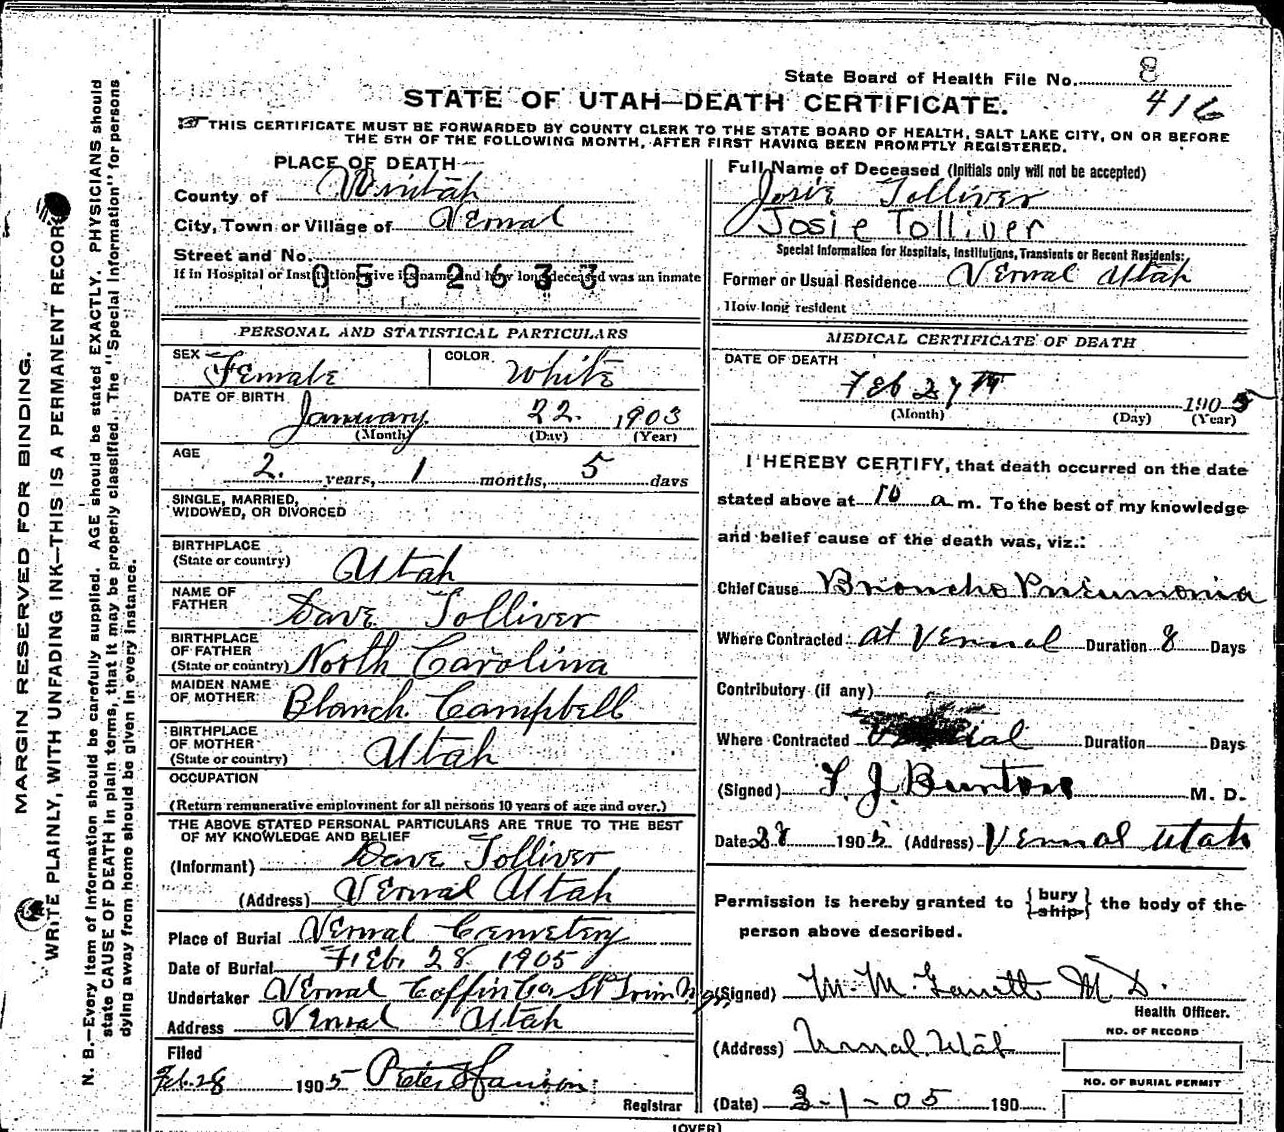 State Board of Health File No. 8
416
STATE OF UTAH—DEATH CERTIFICATE.
THIS CERTIFICATE MUST BE FORWARDED BY COUNTY CLERK TO THE STATE BOARD OF HEALTH, SALT LAKE CITY, ON OR BEFORE
THE 5TH OF THE FOLLOWING MONTH, AFTER FIRST HAVING BEEN PROMPTLY REGISTERED.
PLACE OF DEATH—
County of Uintah
City, Town or Village of Vernal
Street and No.
If in Hospital or Institution, give its name and how long deceased was an inmate
0502633
PERSONAL AND STATISTICAL PARTICULARS
SEX Female COLOR White
DATE OF BIRTH January 22. 1903
(Month) (Day) (Year)
AGE 2. years, 1 months, 5 days
SINGLE, MARRIED,
WIDOWED, OR DIVORCED
BIRTHPLACE
(State or country) Utah
NAME OF
FATHER Dave Tolliver
BIRTHPLACE
OF FATHER
(State or country) North Carolina
MAIDEN NAME
OF MOTHER Blanch Campbell
BIRTHPLACE
OF MOTHER
(State or country) Utah
OCCUPATION
(Return remunerative employment for all persons 10 years of age and over.)
THE ABOVE STATED PERSONAL PARTICULARS ARE TRUE TO THE BEST
OF MY KNOWLEDGE AND BELIEF
(Informant) Dave Tolliver
(Address) Vernal Utah
Place of Burial Vernal Cemetery
Date of Burial Feb. 28 1905
Undertaker Vernal Coffin Co
Address Vernal Utah
Filed
Feb. 28 1905 Peter Hanson
Registrar
Full Name of Deceased (Initials only will not be accepted)
Josie Tolliver
Josie Tolliver
Special Information for Hospitals, Institutions, Transients or Recent Residents:
Former or Usual Residence Vernal Utah
How long resident
MEDICAL CERTIFICATE OF DEATH
DATE OF DEATH
Feb 27th 1905
(Month) (Day) (Year)
I HEREBY CERTIFY, that death occurred on the date
stated above at 10 a m. To the best of my knowledge
and belief cause of the death was, viz.:
Chief Cause Broncho Pneumonia
Where Contracted at Vernal Duration 8 Days
Contributory (if any)
Where Contracted Duration Days
(Signed) F. J. Burton M. D.
Date 28 1905 (Address) Vernal Utah
Permission is hereby granted to {bury ship} the body of the
person above described.
(Signed) M. D.
Health Officer.
(Address) Vernal, Utah
NO. OF RECORD
NO. OF BURIAL PERMIT
(Date) 3-1-05 190
(OVER)
MARGIN RESERVED FOR BINDING.
WRITE PLAINLY, WITH UNFADING INK—THIS IS A PERMANENT RECORD
N. B.—Every item of information should be carefully supplied. AGE should be stated EXACTLY. PHYSICIANS should
state CAUSE OF DEATH in plain terms, that it may be properly classified. The "Special Information" for persons
dying away from home should be given in every instance.